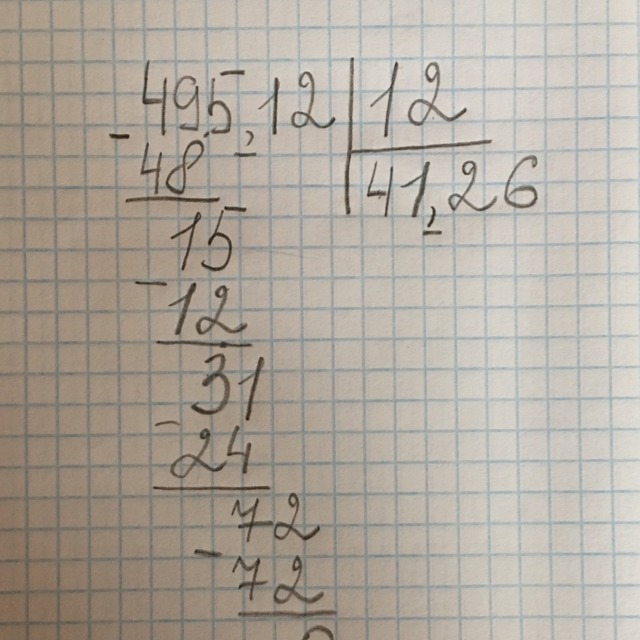 495,12 | 12
- 48 41,26
15
- 12
31
- 24
72
- 72
0